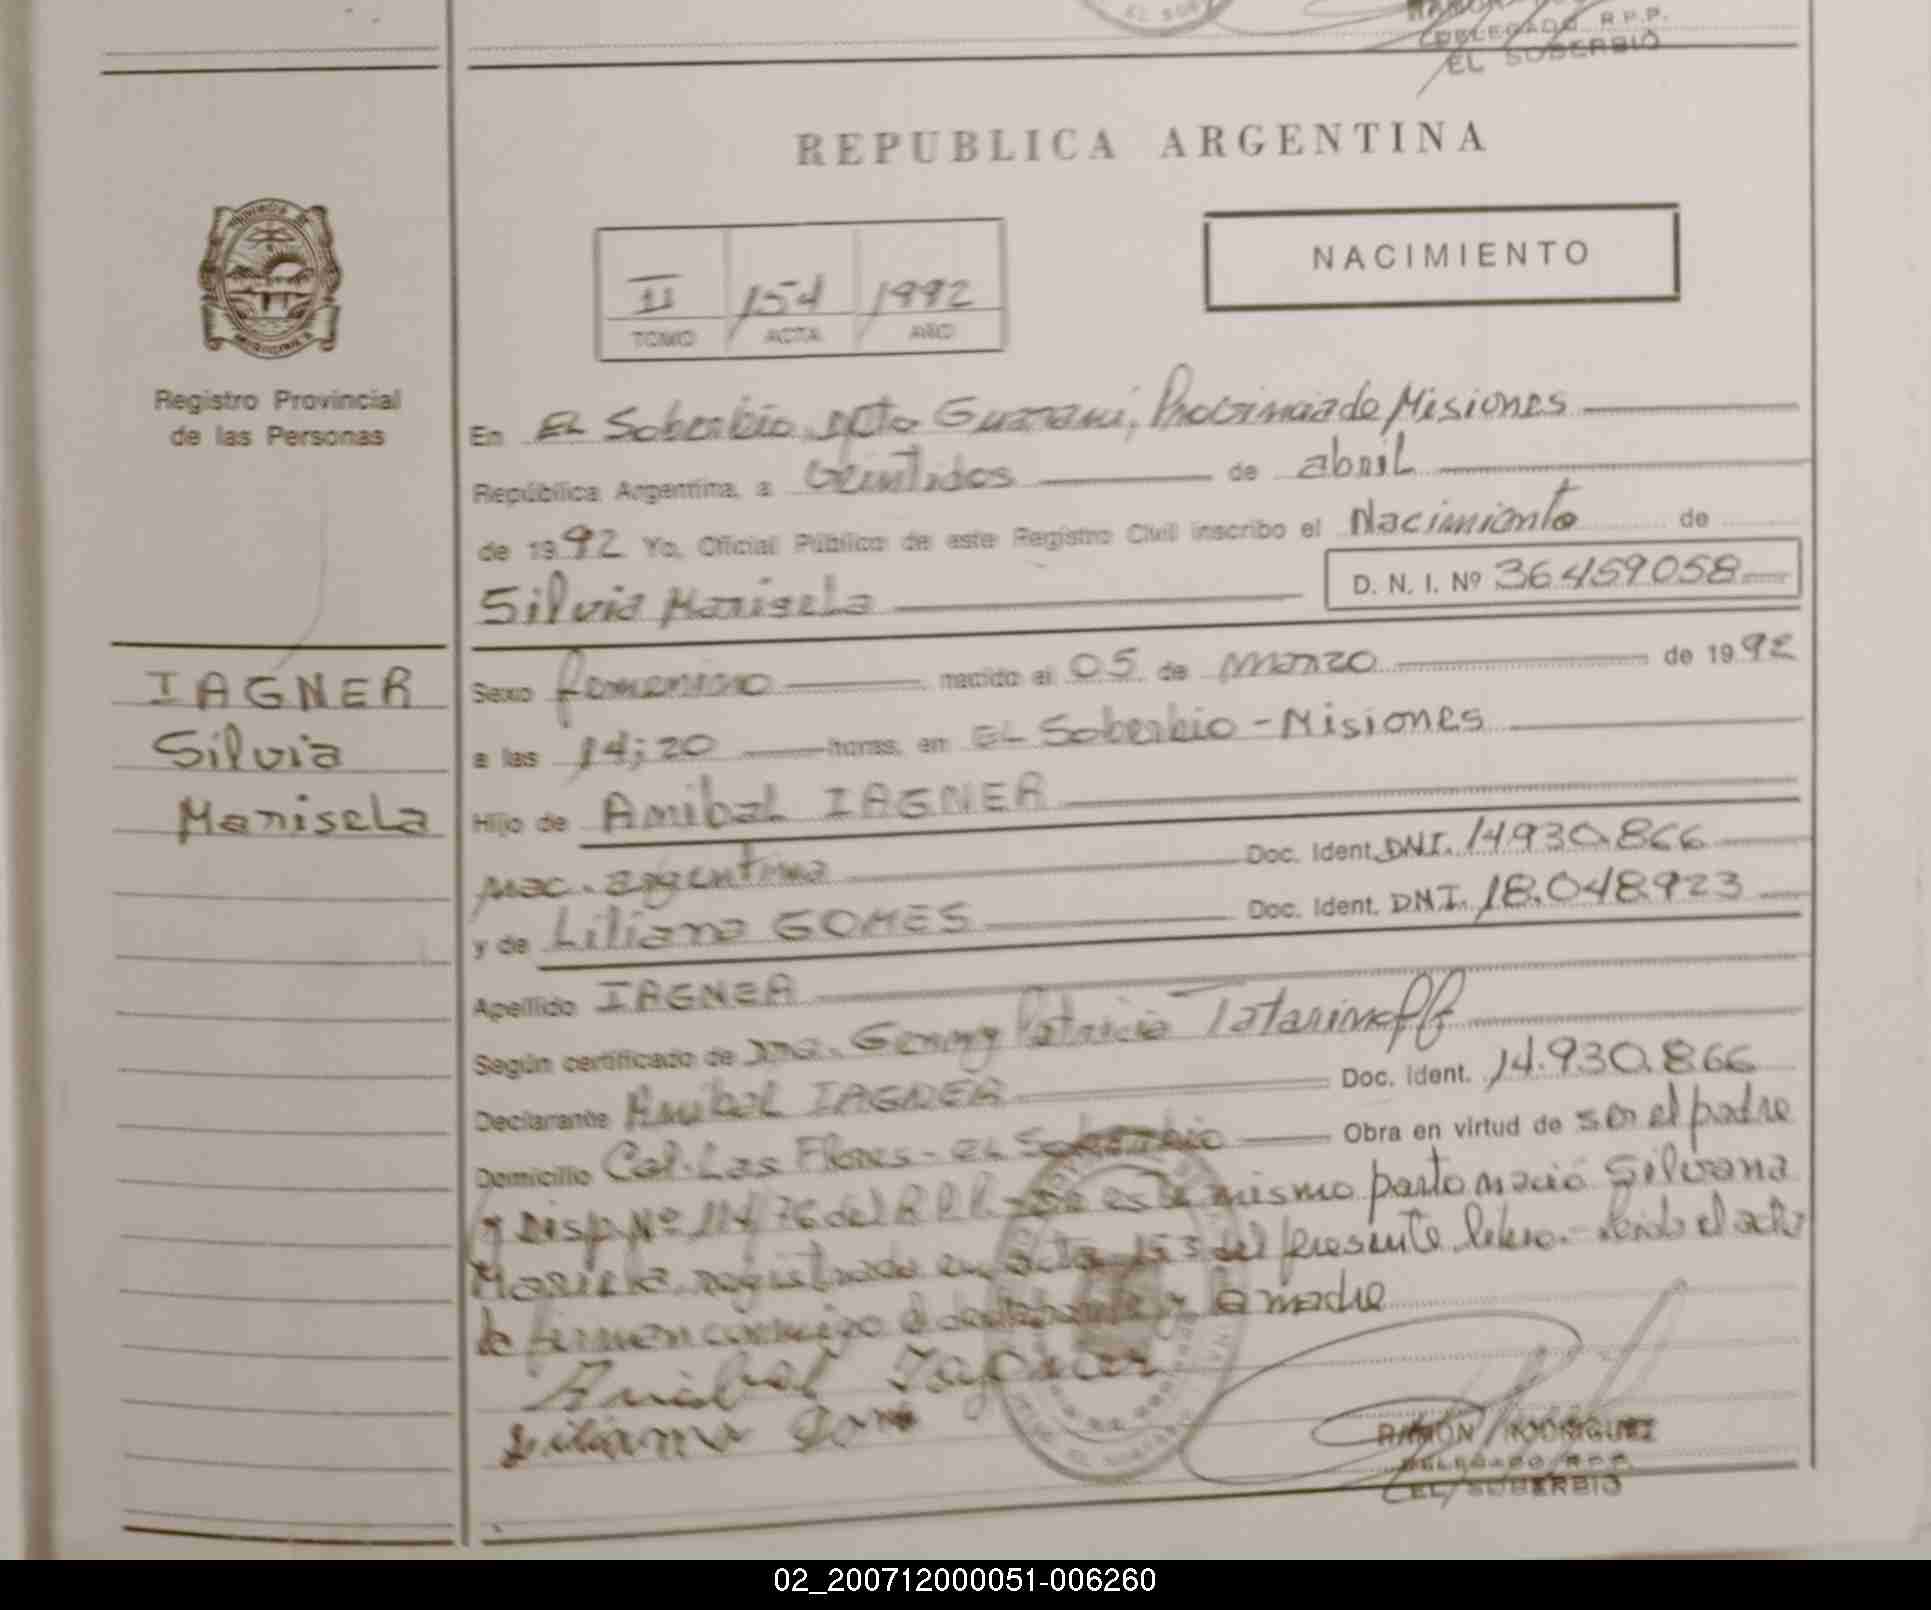 DELEGADO R.P.P.
EL SOBERBIO
REPUBLICA ARGENTINA
NACIMIENTO
II 154 1992
TOMO ACTA AÑO
Registro Provincial
de las Personas
En EL Soberbio, dpto Guarani, Provincia de Misiones
República Argentina, a veintidos de abril
de 1992 Yo, Oficial Público de este Registro Civil inscribo el Nacimiento de
Silvia Marisela D. N. I. Nº 36459058
IAGNER
Silvia
Marisela
Sexo femenino nacido el 05 de marzo de 1992
a las 14;20 horas, en EL Soberbio - Misiones
Hijo de Anibal IAGNER
nac. argentina Doc. Ident. DNI. 14.930.866
y de Liliana GOMES Doc. Ident. DNI. 18.048.923
Apellido IAGNER
Según certificado de Dra. Genny Patricia Tatarinoff
Declarante Anibal IAGNER Doc. Ident. 14.930.866
Domicilio Col. Las Flores - EL Soberbio Obra en virtud de ser el padre
y Disp. Nº 114/76 del R.P.P. este mismo parto nació Silvana
registrada en acta 153 del presente libro.- leida el acta
la firman conmigo el declarante y la madre
Anibal Iagner
Liliana
RAMON RODRIGUEZ
DELEGADO R.P.P.
EL SOBERBIO
02_200712000051-006260